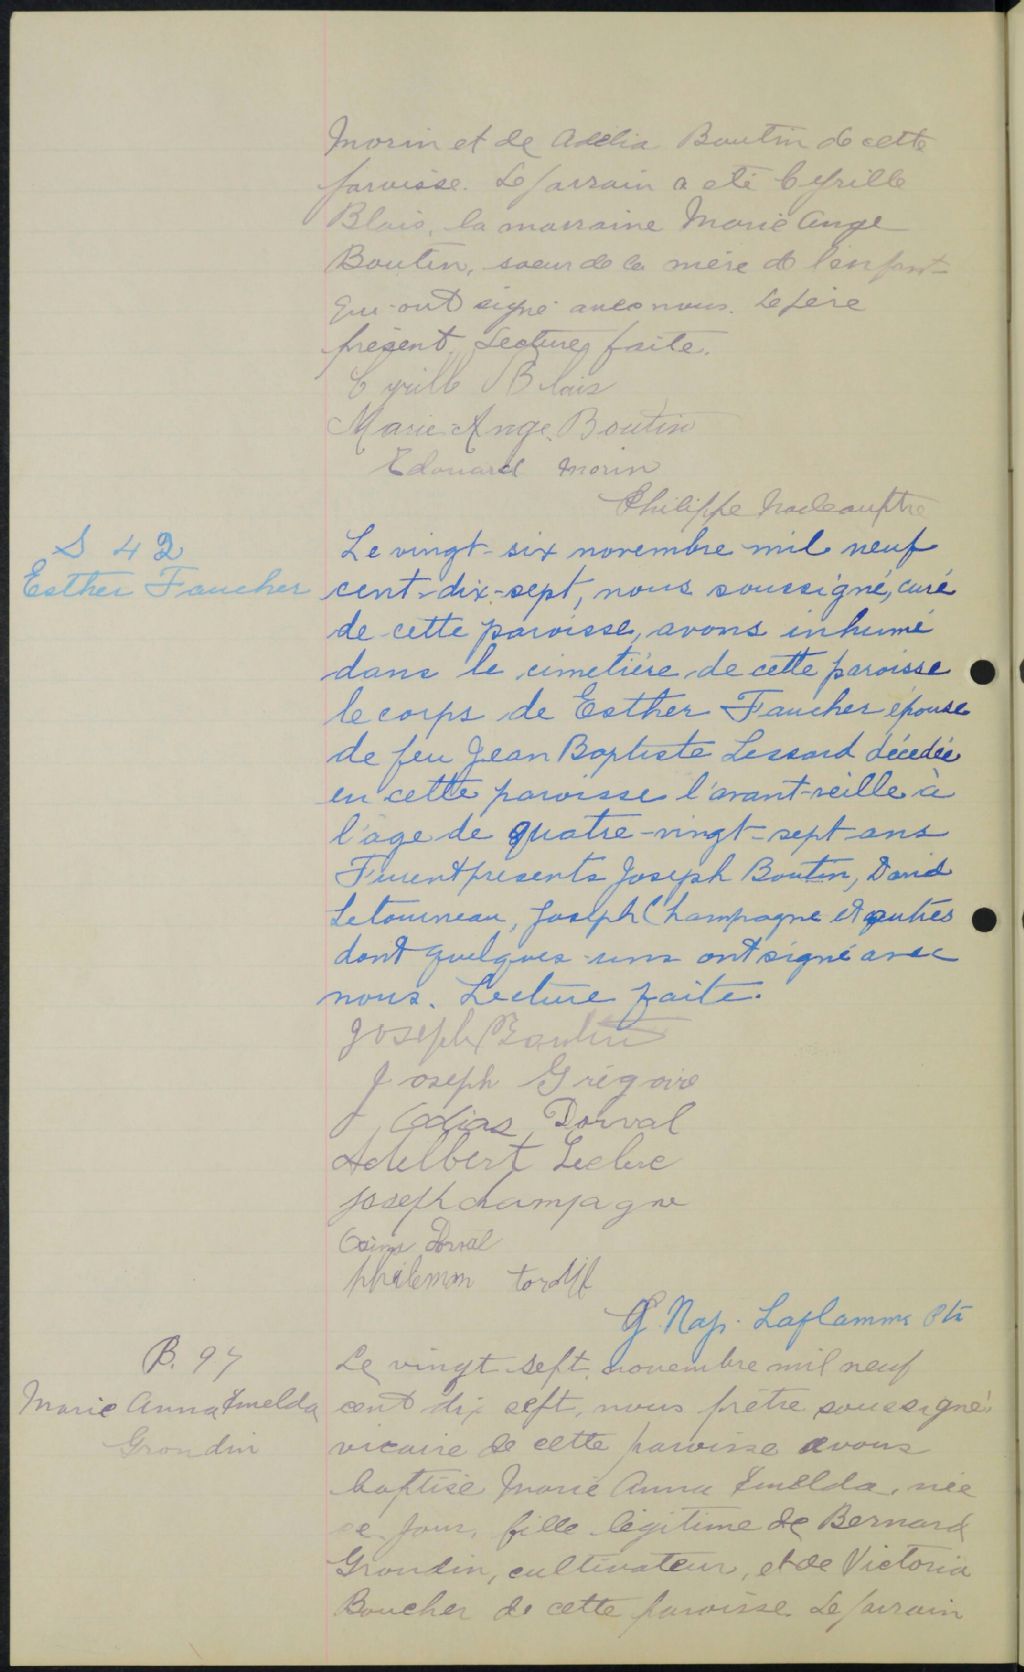 Morin et de Adélia Boutin de cette
paroisse. Le parrain a été Cyrille
Blais, la marraine Marie Ange
Boutin, soeur de la mère de l'enfant
qui ont signé avec nous. Le père
présent. Lecture faite.
Cyrille Blais
Marie-Ange Boutin
Edouard Morin
Philippe Nadeau ptre
S 42
Esther Faucher
Le vingt-six novembre mil neuf
cent-dix-sept, nous soussigné, curé
de cette paroisse, avons inhumé
dans le cimetière de cette paroisse
le corps de Esther Faucher épouse
de feu Jean Baptiste Lessard décédée
en cette paroisse l'avant-veille à
l'âge de quatre-vingt-sept-ans
Furent présents Joseph Boutin, David
Letourneau, Joseph Champagne et autres
dont quelques-uns ont signé avec
nous. Lecture faite.
Joseph Boutin
Joseph Grégoire
Odias Dorval
Adelbert Leclerc
Joseph champagne
Dorval
philemon tardif
G. Nap. Laflamme Ptr
B. 97
Marie Anna Emelda
Grondin
Le vingt sept novembre mil neuf
cent dix sept, nous prêtre soussigné
vicaire de cette paroisse avons
baptisé Marie Anna Emelda, née
ce jour, fille légitime de Bernard
Grondin, cultivateur, et de Victoria
Boucher de cette paroisse. Le parrain